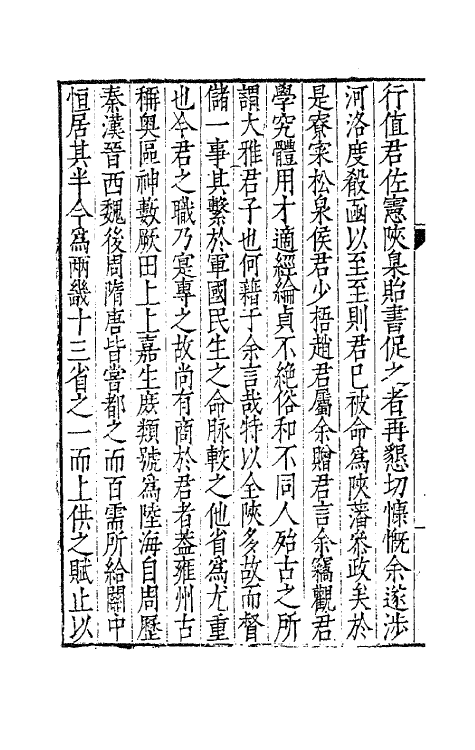 行值君佐憲陝臬貽書促之者再懇切慷慨余遂涉
河洛度殽函以至至則君已被命爲陝藩叅政矣於
是寮寀松泉侯君少梧趙君屬余贈君言余竊觀君
學究體用才適經綸貞不絶俗和不同人殆古之所
謂大雅君子也何藉于余言哉特以全陝多故而督
儲一事其繫於軍國民生之命脉較之他省爲尤重
也今君之職乃寔專之故尚有商於君者葢雍州古
稱奥區神藪厥田上上嘉生庶類號爲陸海自周歷
秦漢晉西魏後周隋唐皆嘗都之而百需所給關中
恒居其半今爲兩畿十三省之一而上供之賦止以